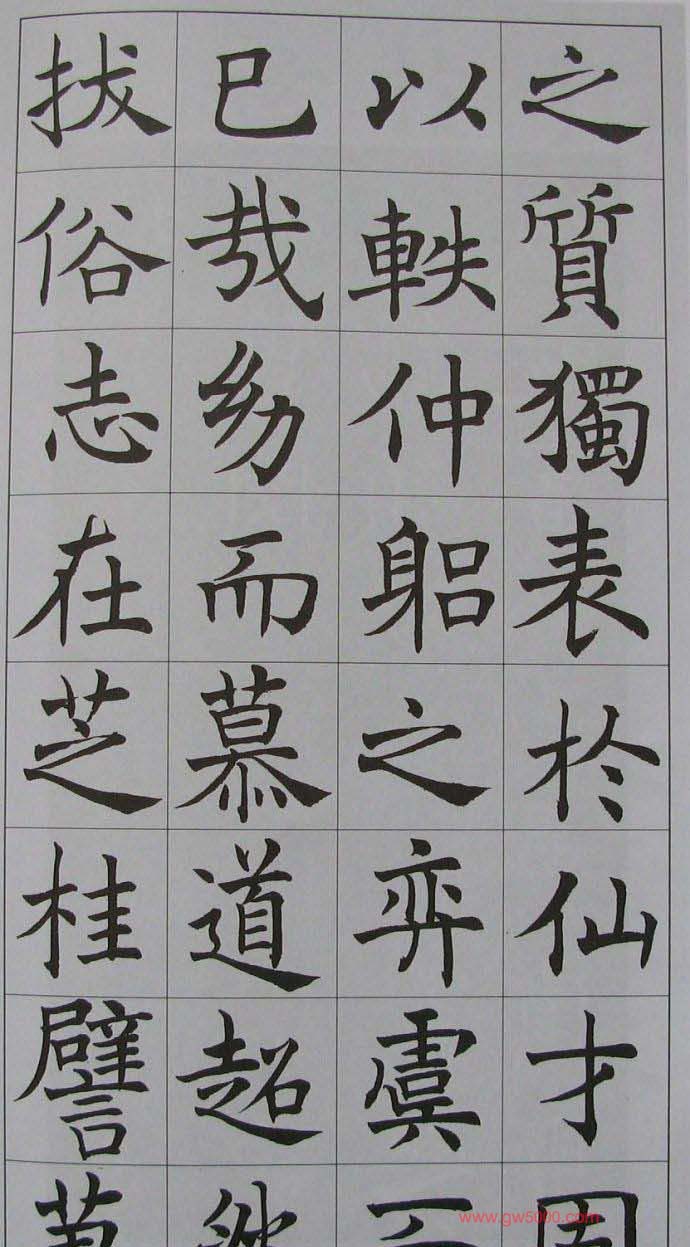 之質獨表於仙才
以軼仲躳之弈虞
已哉幼而慕道超
拔俗志在芝桂譬
www.gw5000.com